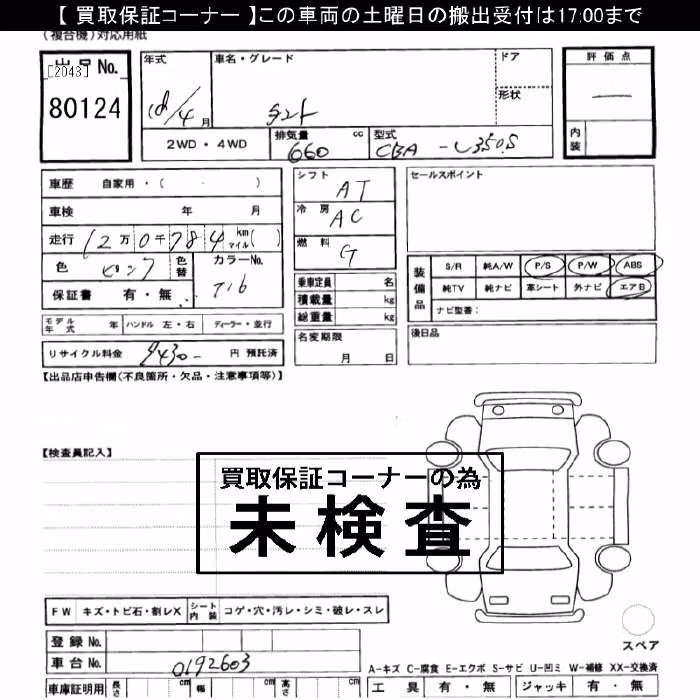 【 買取保証コーナー 】この車両の土曜日の搬出受付は17:00まで
(複合機)対応用紙
出品No.
[2043]
80124
年式
18/4月
車名・グレード
タント
ドア
形状
評価点
内装
2WD・4WD
排気量 660 cc
型式 CBA-L350S
車歴 自家用・( ・ )
車検 年 月
走行 12万0千784 km マイル( )
色 ピンク 色替
カラーNo. T16
保証書 有・無
シフト AT
冷房 AC
燃料 G
乗車定員 名
積載量 kg
総重量 kg
セールスポイント
装備品
S/R 純A/W P/S P/W ABS
純TV 純ナビ 革シート 外ナビ エアB
ナビ型番:
モデル年式 年 ハンドル 左・右 ディーラー・並行
名変期限
月 日
後日品
リサイクル料金 9430- 円 預託済
【出品店申告欄(不良箇所・欠品・注意事項等)】
【検査員記入】
買取保証コーナーの為
未検査
FW キズ・トビ石・割レX シート内装 コゲ・穴・汚レ・シミ・破レ・スレ
登録No.
車台No. 0192603
車庫証明用 長さ cm 幅 cm 高さ cm
スペア
A-キズ C-腐食 E-エクボ S-サビ U-凹ミ W-補修 XX-交換済
工具 有・無 ジャッキ 有・無